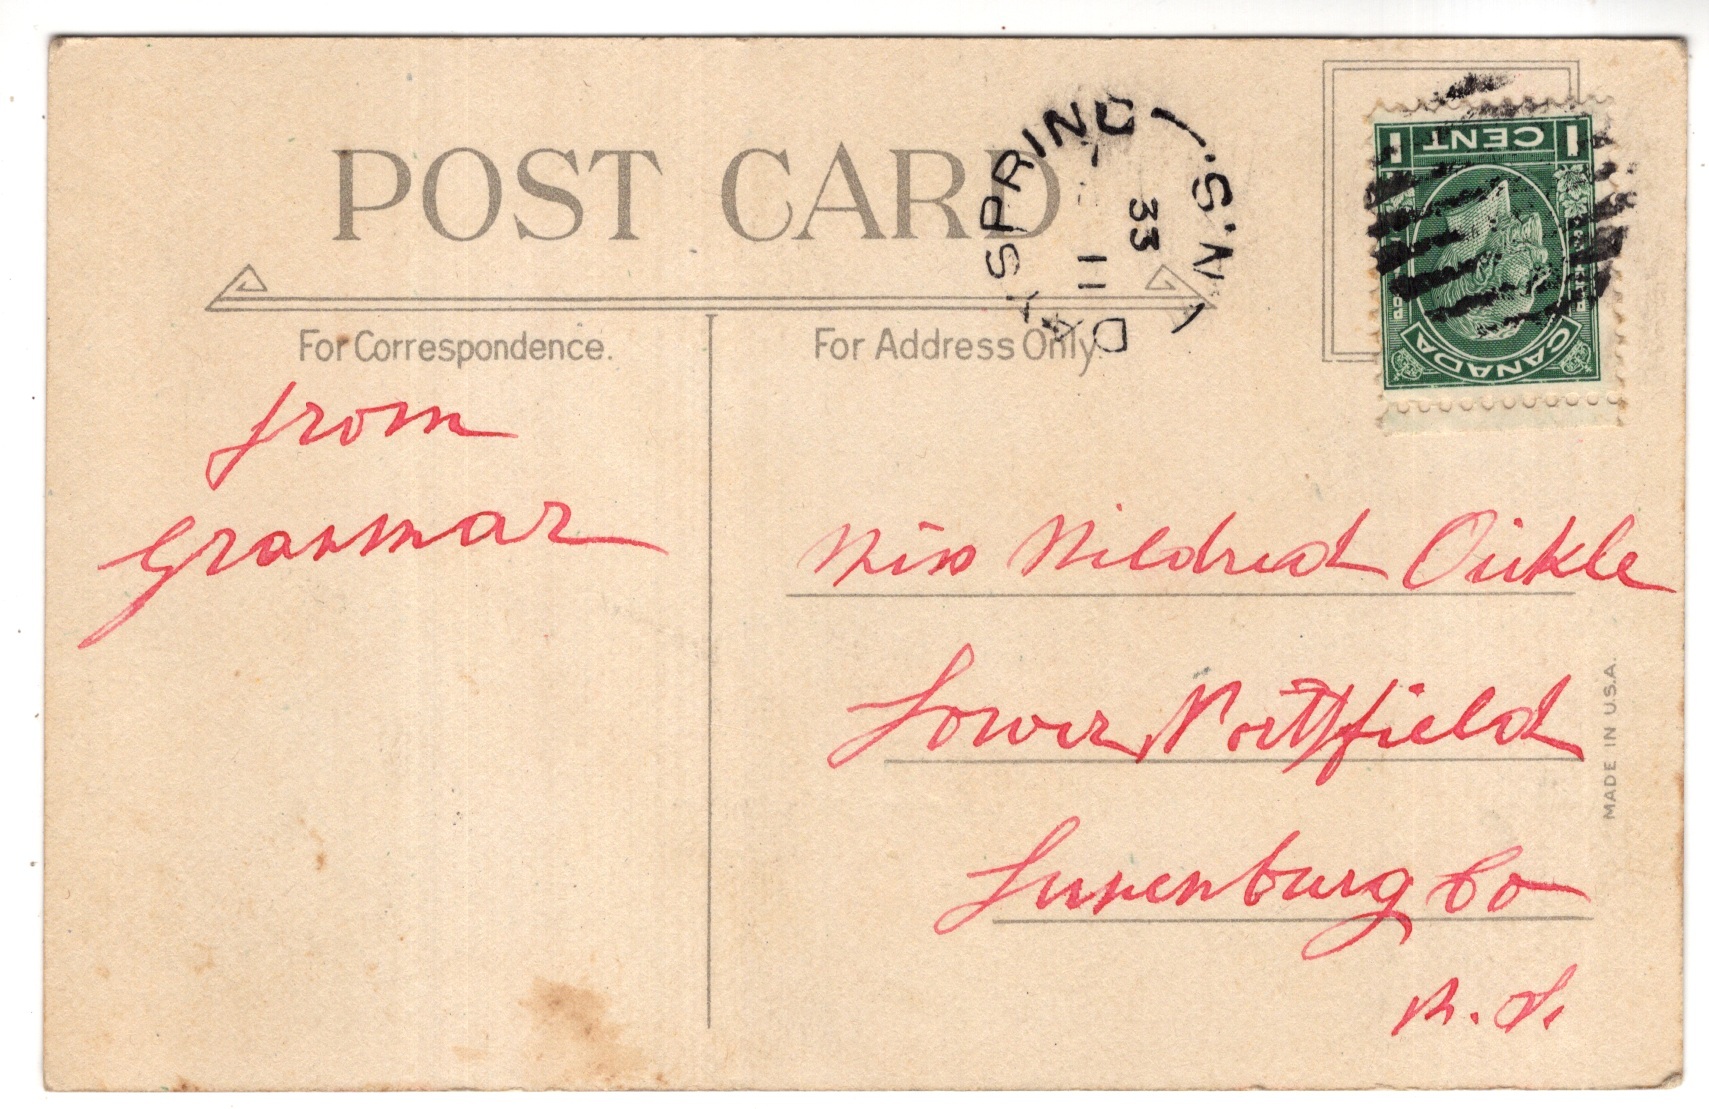 POST CARD
DAYSPRING
N.S.
11
33
1 CENT 1
CANADA
For Correspondence.
For Address Only.
from
Granmar
Miss Mildred Oickle
Lower Nortfield
Lunenburg Co
N. S.
MADE IN U.S.A.